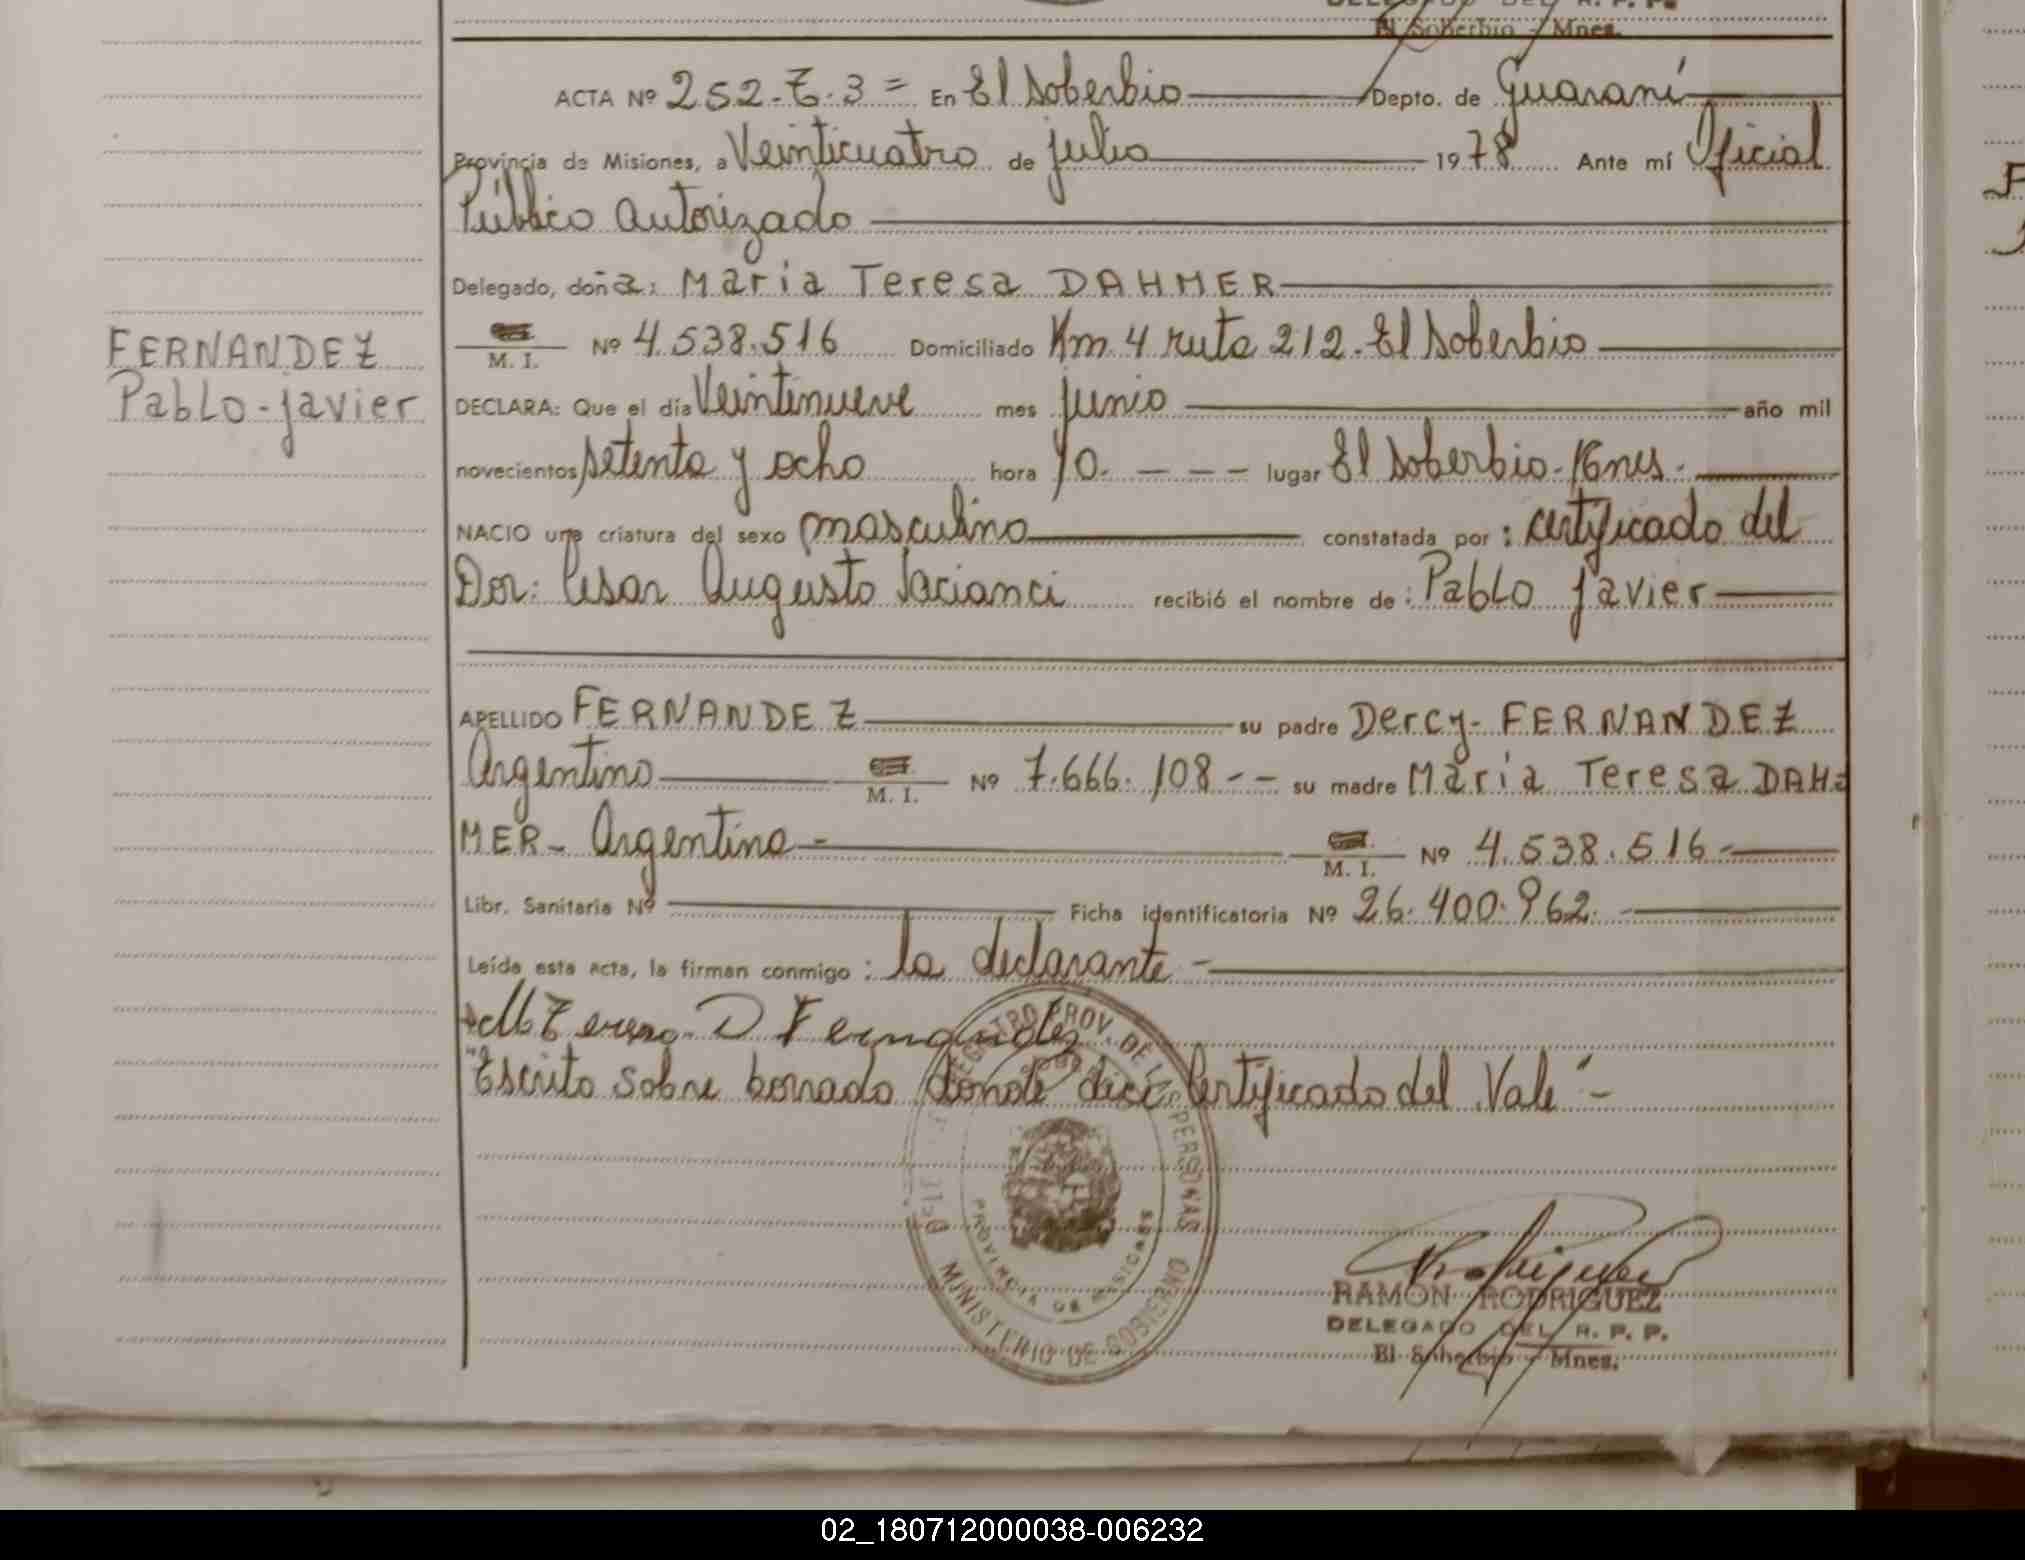 El Soberbio - Mnes.
ACTA Nº 252-T-3= En El Soberbio Depto. de Guaraní
Provincia de Misiones, a Veinticuatro de julio 1978 Ante mí Oficial
Público Autorizado
Delegado, doña: Maria Teresa DAHMER
M. I. Nº 4.538.516 Domiciliado Km 4 ruta 212. El Soberbio
FERNANDEZ
Pablo-javier
DECLARA: Que el día Veintinueve mes junio año mil
novecientos setenta y ocho hora 10. - - - lugar El Soberbio-Mnes.
NACIO una criatura del sexo masculino constatada por: certificado del
Dor: Cesar Augusto recibió el nombre de: Pablo javier
APELLIDO FERNANDEZ su padre Dercy- FERNANDEZ
Argentino M. I. Nº 7.666.108 - - su madre Maria Teresa DAH=
MER- Argentina - M. I. Nº 4.538.516-
Libr. Sanitaria Nº Ficha identificatoria Nº 26.400.962.-
Leída esta acta, la firman conmigo: la declarante -
M Teresa D Fernandez
"Escrito sobre borrado donde dice Certificado del Vale"-
REGISTRO PROV. DE LAS PERSONAS
PROVINCIA DE MISIONES
MINISTERIO DE GOBIERNO
RAMON RODRIGUEZ
DELEGADO DEL R. P. P.
El Soberbio - Mnes.
02_180712000038-006232